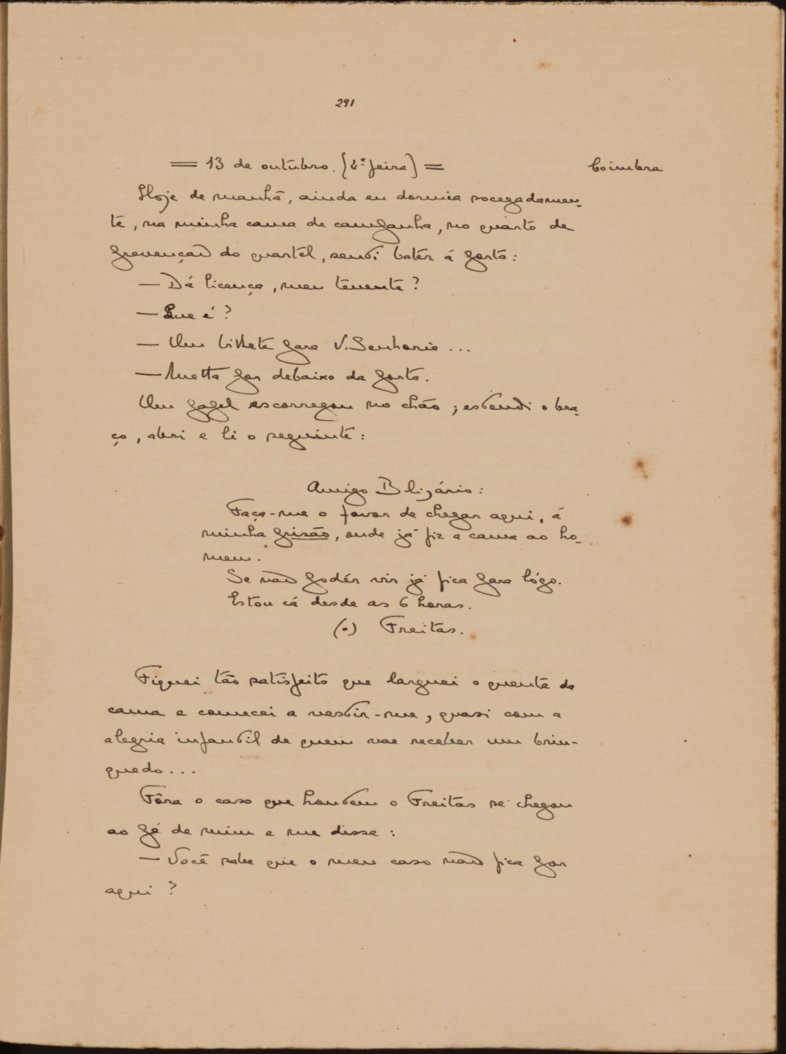 291
= 13 de outubro. (2ª feira) = Coimbra
Hoje de manhã, ainda eu dormia socegadamen-
te, na minha cama de campanha, no quarto de
prevenção do quartél, senti batêr á porta:
— Dá licença, meu tenente?
— Que é?
— Um bilhete para V. Senhoria...
— Metta por debaixo da porta.
Um papel escorregou no chão; estendi o bra-
ço, abri e li o seguinte:
Amigo Blizário:
Faça-me o favor de chegar aqui, á
minha prisão, onde já fiz a cama ao ho-
mem.
Se não podér vir já fica para lógo.
Estou cá desde as 6 horas.
(a) Freitas.
Fiquei tão satisfeito que larguei o quente da
cama e comecei a vestir-me, quasi com a
alegria infantil de quem vae receber um brin-
quedo...
Fôra o caso que hontem o Freitas se chegou
ao pé de mim e me disse:
— Você sabe que o meu caso não fica por
aqui?